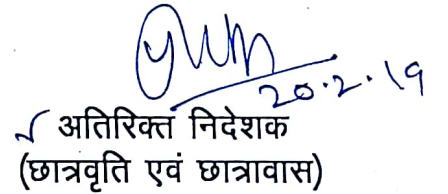 20.2.19
अतिरिक्त निदेशक
(छात्रवृति एवं छात्रावास)